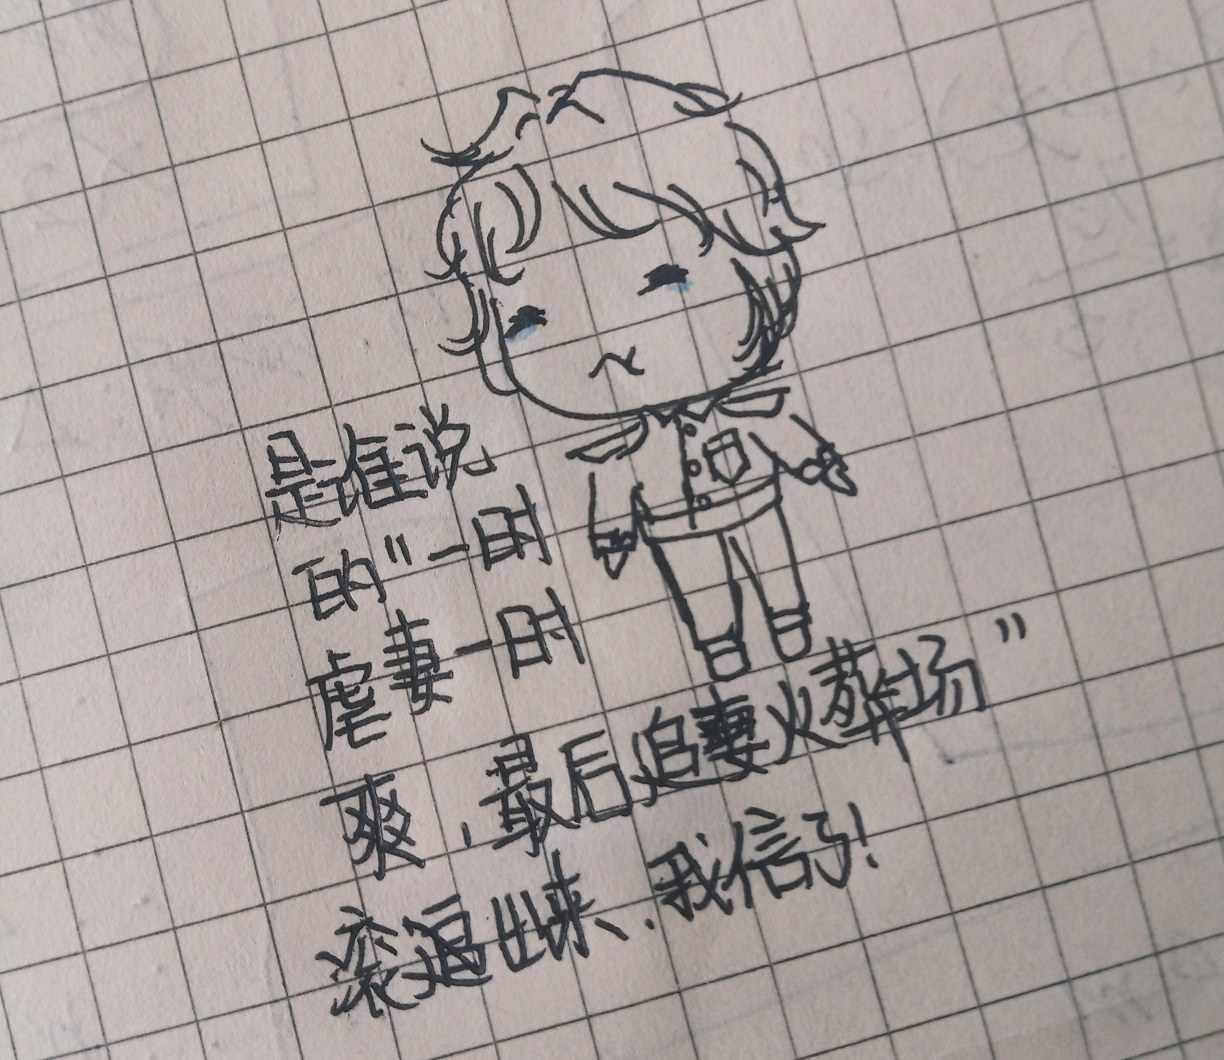 是谁说
的"一时
虐妻一时
爽,最后追妻火葬场"
滚逼出来,我信了!